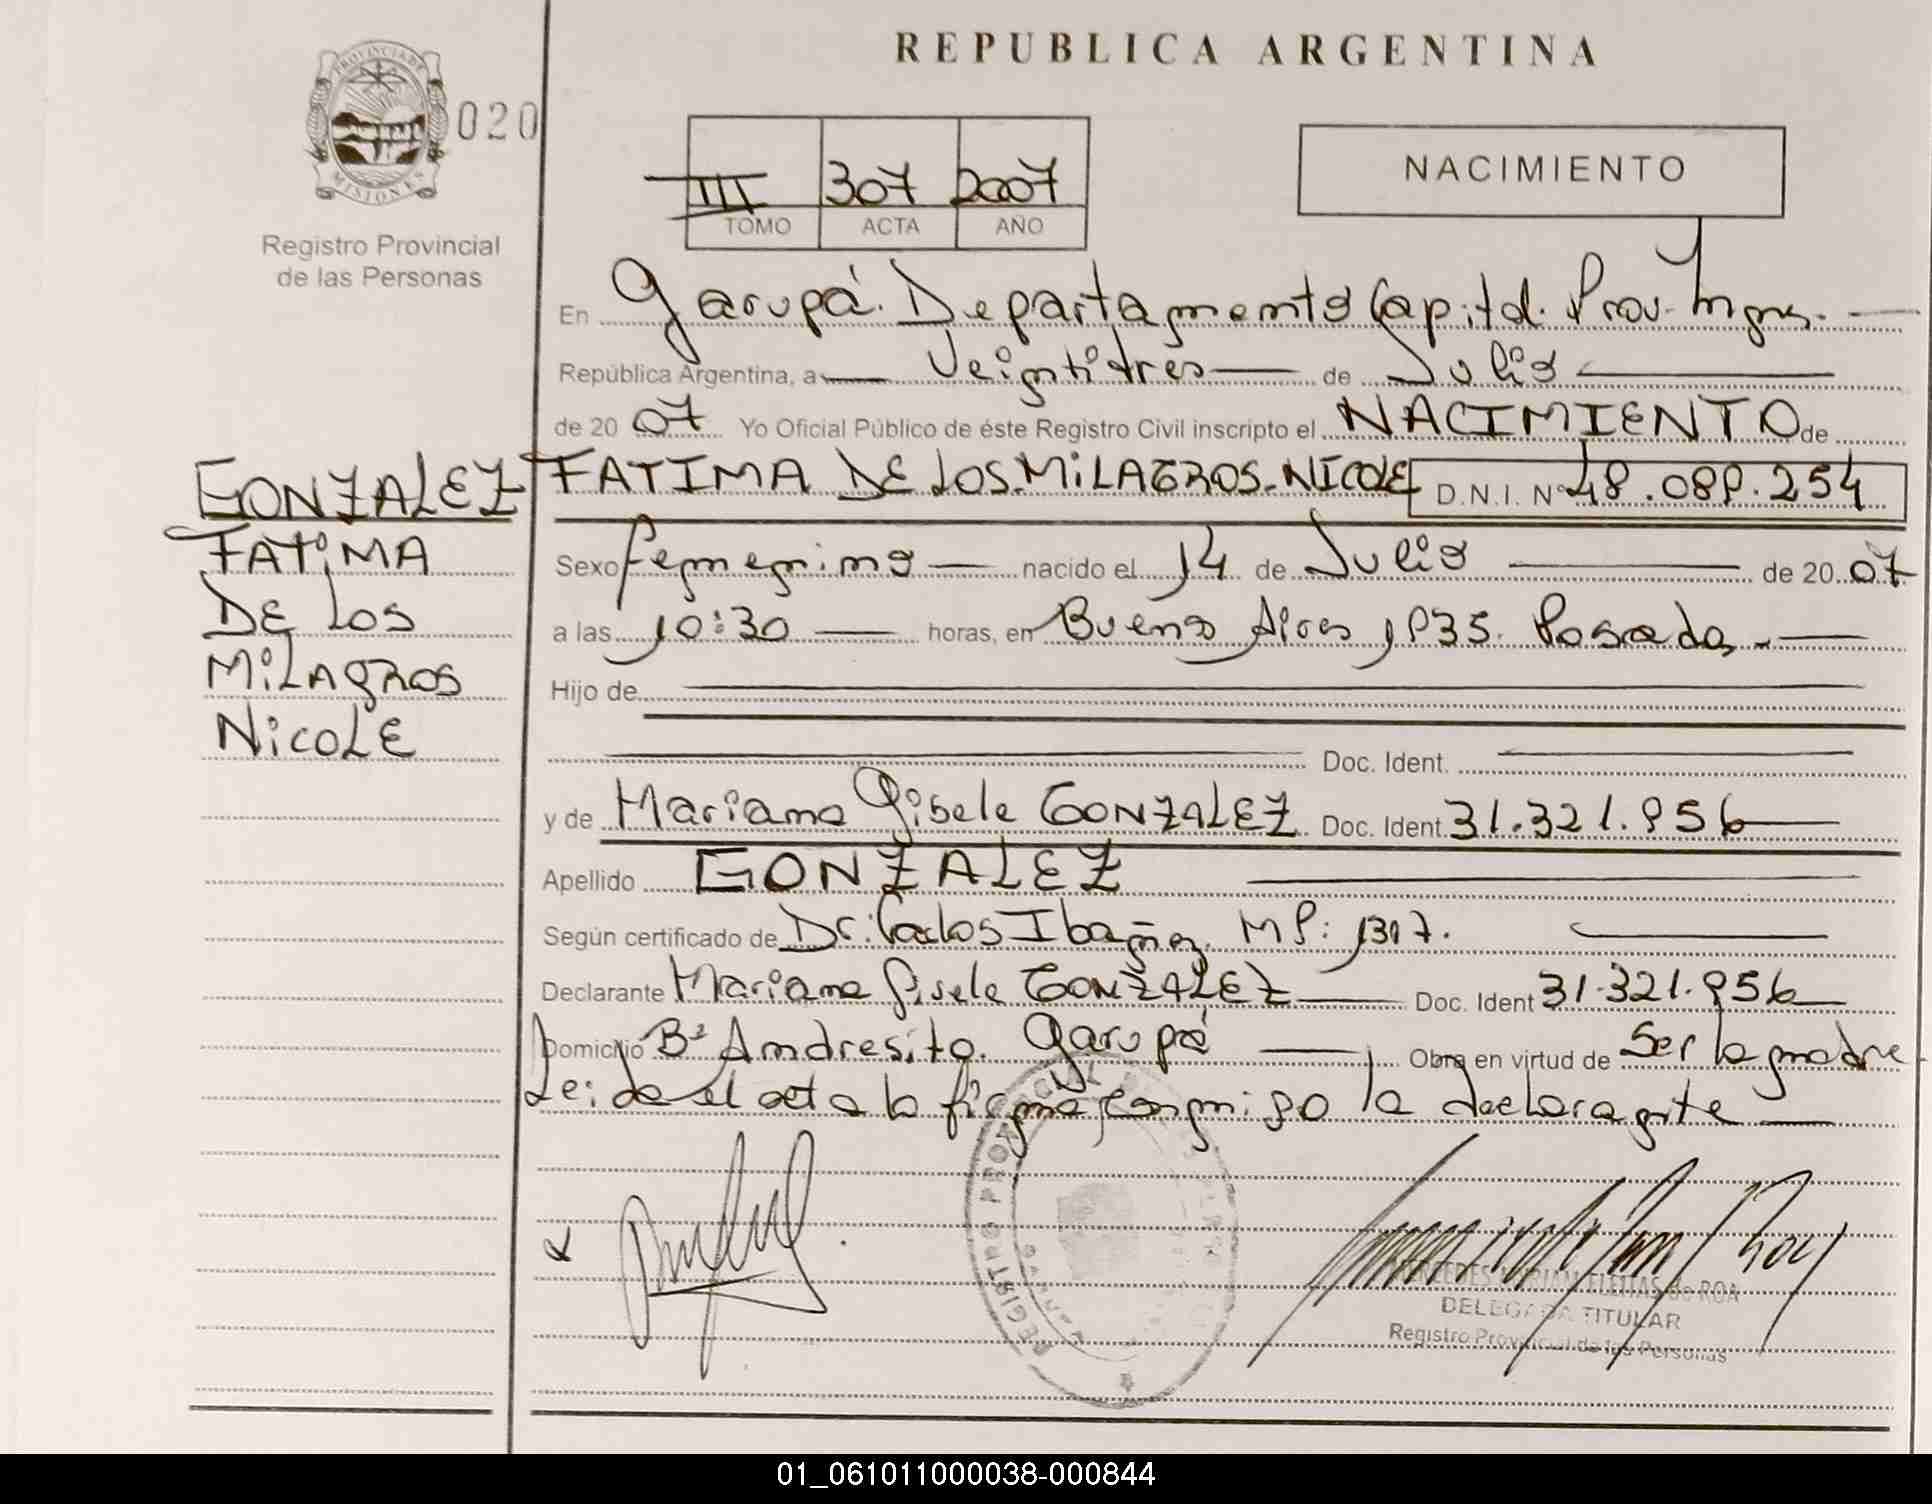 REPUBLICA ARGENTINA
PROVINCIA DE
MISIONES
020
Registro Provincial
de las Personas
III 307 2007
TOMO ACTA AÑO
NACIMIENTO
En Garupá. Departamento Capital. Prov. Mnes.
República Argentina, a Veintitres de Julio
de 2007 Yo Oficial Público de éste Registro Civil inscripto el NACIMIENTO de
GONZALEZ FATIMA DE LOS MILAGROS NICOLE D.N.I. Nº 48.089.254
FATIMA
DE LOS
MILAGROS
NICOLE
Sexo femenino nacido el 14 de Julio de 2007
a las 10:30 horas, en Buenos Aires 1935. Posadas
Hijo de
Doc. Ident.
y de Mariana Gisele GONZALEZ Doc. Ident. 31.321.956
Apellido GONZALEZ
Según certificado de Dr: Carlos Ibañez. MP: 1317.
Declarante Mariana Gisele GONZALEZ Doc. Ident 31.321.956
Domicilio Bº Andresito. Garupá Obra en virtud de Ser la madre
Leida el acta la firma conmigo la declarante
REGISTRO PROVINCIAL
MERCEDES MIRIAM FLEITAS de ROA
DELEGADA TITULAR
Registro Provincial de las Personas
01_061011000038-000844